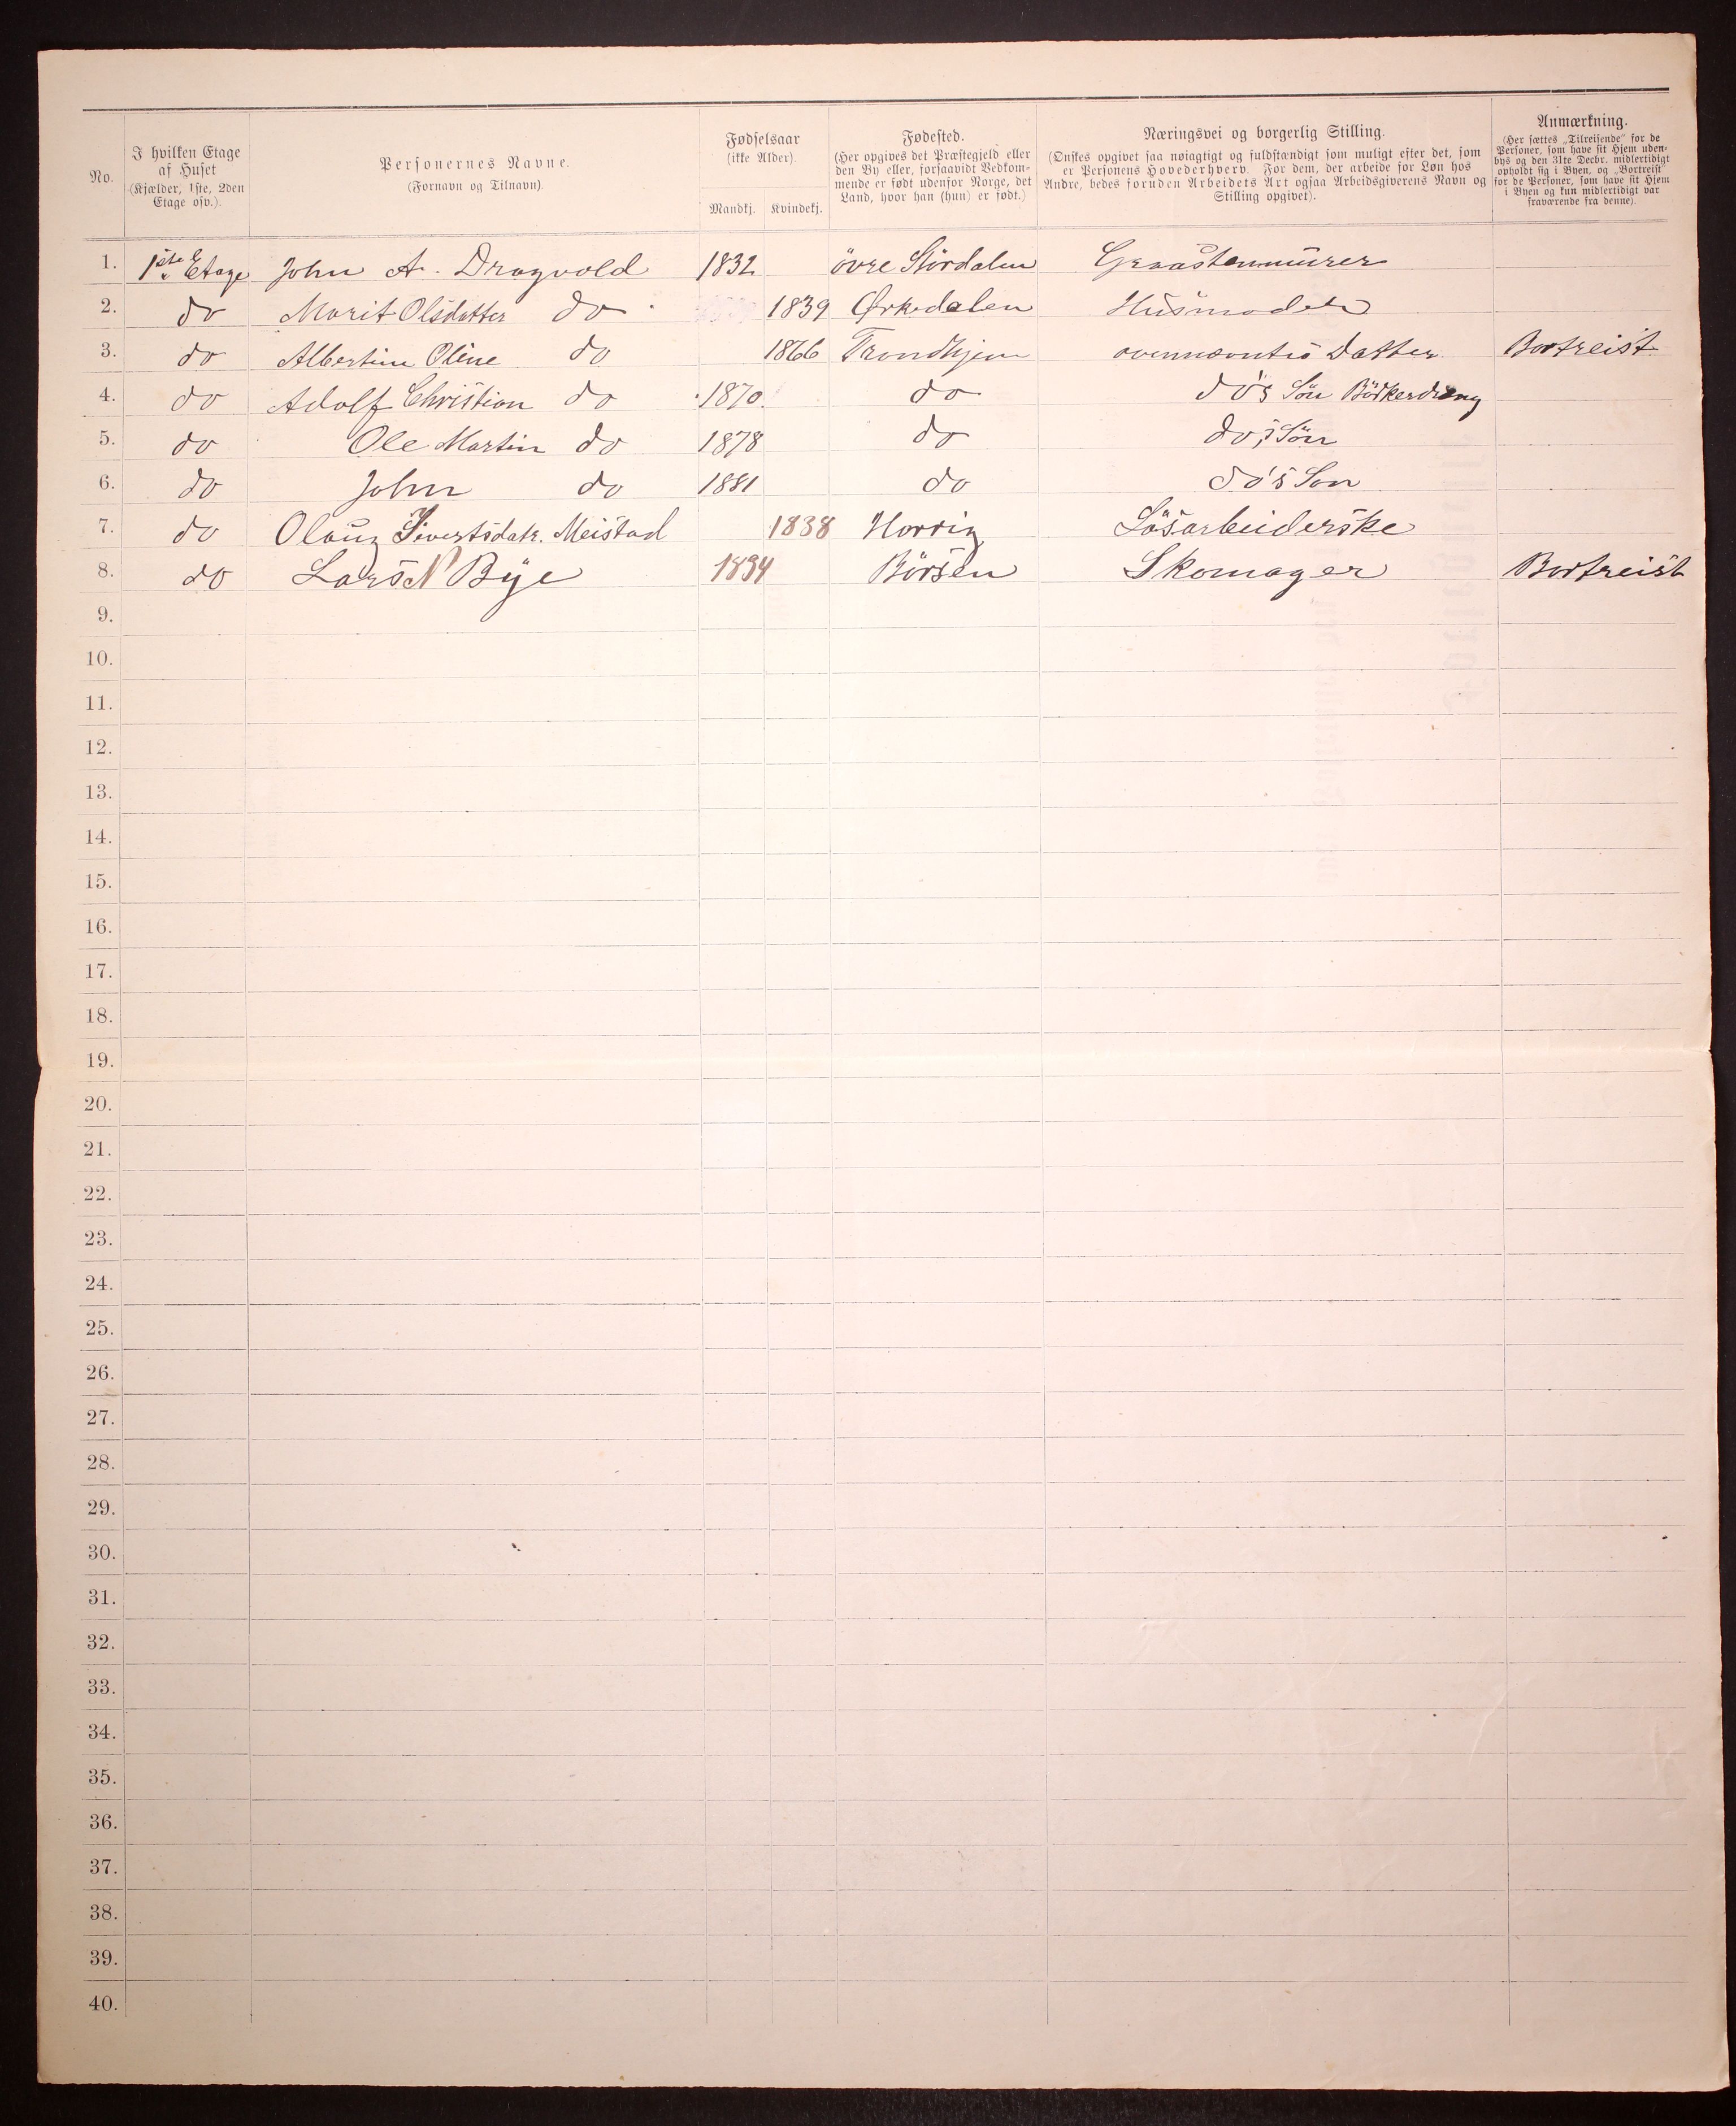 No.
I hvilken Etage
af Huset
(Kjælder, 1ste, 2den
Etage osv.).
Personernes Navne.
(Fornavn og Tilnavn).
Fødselsaar
(ikke Alder)
Mandkj. Kvindekj.
Fødested.
(Her opgives det Præstegjeld eller
den By eller, forsaavidt Vedkom-
mende er født udenfor Norge, det
Land, hvor han (hun) er født.)
Næringsvei og borgerlig Stilling.
(Ønskes opgivet saa nøiagtigt og fuldstændigt som muligt efter det, som
er Personens Hovederhverv. For dem, der arbeide for Løn hos
Andre, bedes foruden Arbeidets Art ogsaa Arbeidsgiverens Navn og
Stilling opgivet).
Anmærkning.
(Her sættes „Tilreisende" for de
Personer, som have sit Hjem uden-
bys og den 31te Decbr. midlertidigt
opholdt sig i Byen, og „Bortreist"
for de Personer, som have sit Hjem
i Byen og kun midlertidigt var
fraværende fra denne).
1. 1ste Etage John A. Dragvold 1832 övre Stördalen Graastenmürer
2. do Marit Olsdatter do 1839 Ørkedalen Husmoder
3. do Albertine Oline do 1866 Trondhjem ovennævntes Datter Bortreist
4. do Adolf Christian do 1870 do do's Sön Bödkerdreng
5. do Ole Martin do 1878 do do's Sön
6. do John do 1881 do do's Son
7. do Olaug Sivertsdatr. Meistad 1838 Horrig Lösarbeiderske
8. do Lars N Bye 1834 Börsen Skomager Bortreist
9.
10.
11.
12.
13.
14.
15.
16.
17.
18.
19.
20.
21.
22.
23.
24.
25.
26.
27.
28.
29.
30.
31.
32.
33.
34.
35.
36.
37.
38.
39.
40.